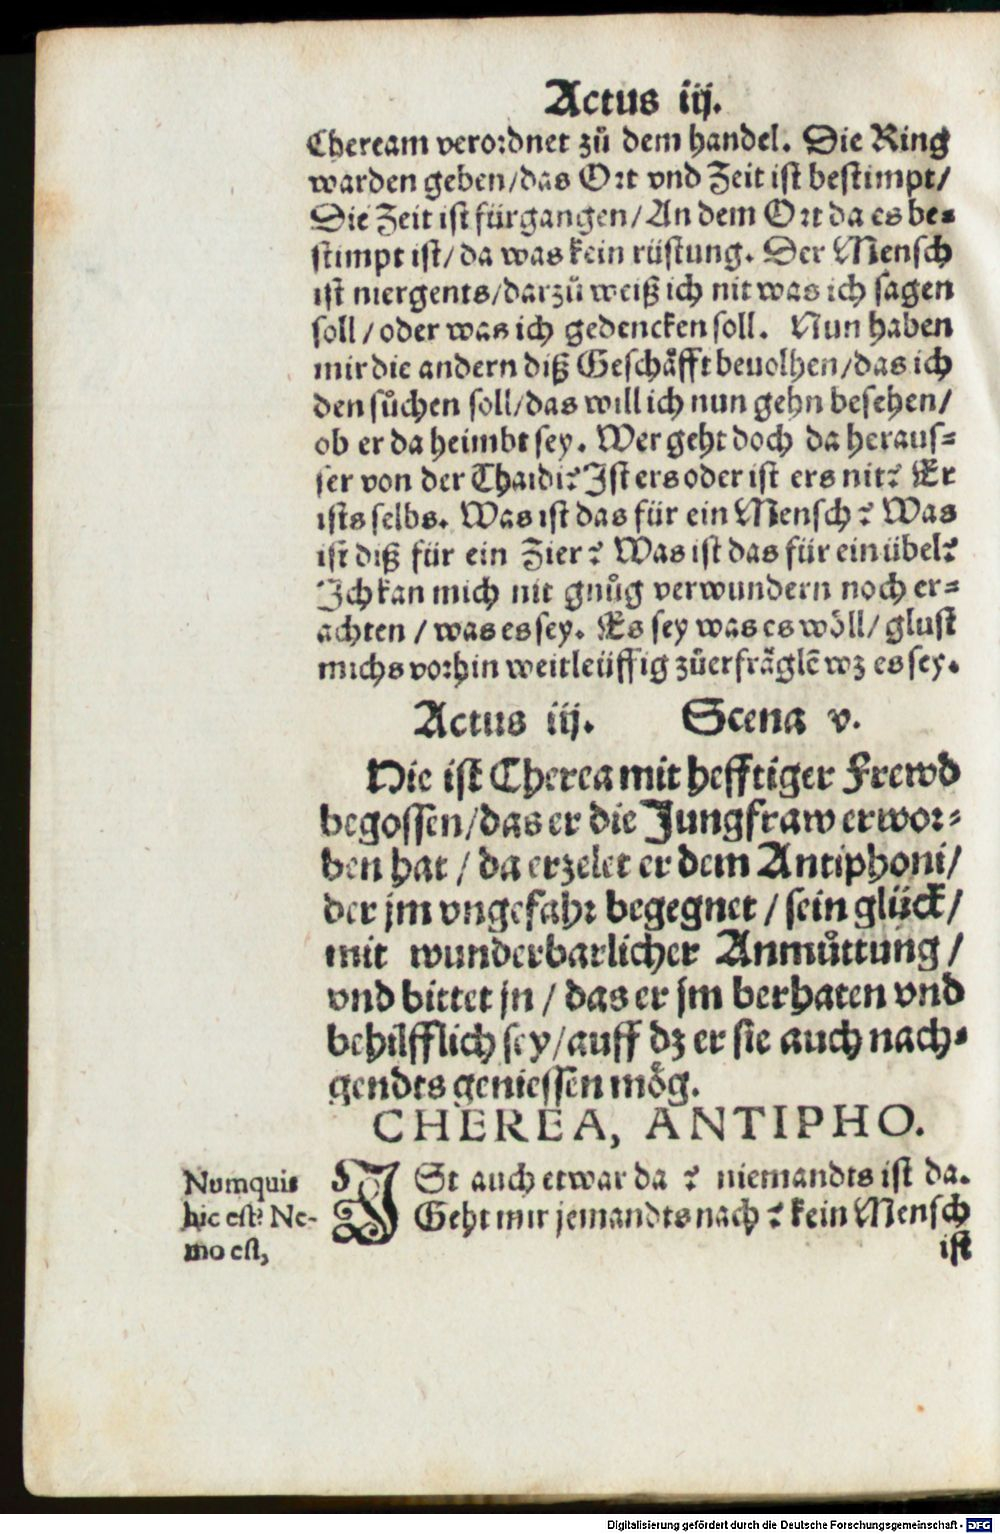 Actus iij.
Cheream verordnet zů dem handel. Die Ring
warden geben/das Ort vnd Zeit ist bestimpt/
Die Zeit ist fürgangen/An dem Ort da es be-
stimpt ist/da was kein rüstung. Der Mensch
ist niergents/darzů weiß ich nit was ich sagen
soll/oder was ich gedencken soll. Nun haben
mir die andern diß Geschäfft beuolhen/das ich
den sůchen soll/das will ich nun gehn besehen/
ob er daheimbt sey. Wer geht doch da heraus-
ser von der Thaidi? Ist ers oder ist ers nit? Er
ists selbs. Was ist das für ein Mensch? Was
ist diß für ein Zier? Was ist das für ein übel?
Ich kan mich nit gnůg verwundern noch er-
achten/was es sey. Es sey was es wöll/glust
michs vorhin weitleüffig zůerfräglē wz es sey.
Actus iij. Scena v.
Hie ist Cherea mit hefftiger Frewd
begossen/das er die Jungfraw erwor-
ben hat/da erzelet er dem Antiphoni/
der jm vngefahr begegnet/sein glück/
mit wunderbarlicher Anmůttung/
vnd bittet jn/das er jm berhaten vnd
behilfflich sey/auff dz er sie auch nach-
gendts geniessen mög.
CHEREA, ANTIPHO.
Numquis
hic est? Ne-
mo est,
ISt auch etwar da? niemandts ist da.
Geht mir jemandts nach? kein Mensch
ist
Digitalisierung gefördert durch die Deutsche Forschungsgemeinschaft - DFG